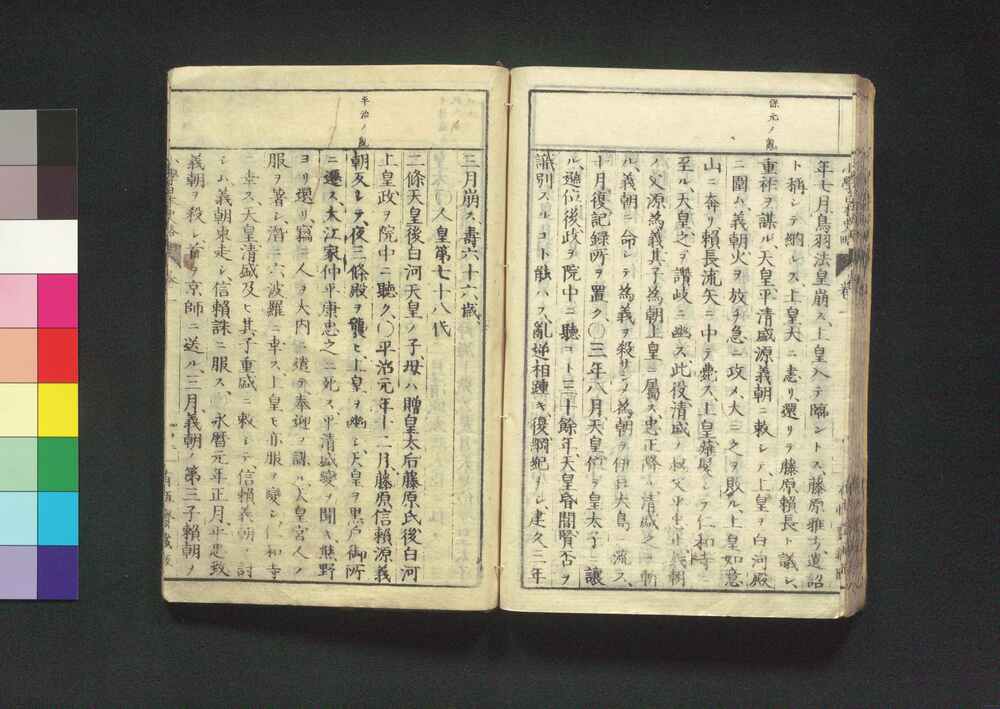 保元ノ亂
年七月鳥羽法皇崩ス、上皇入テ臨ントス、藤原惟方遺詔
ト稱シテ納レス、上皇大ニ恚リ、還リテ藤原賴長ト議シ、
重祚ヲ謀ル、天皇、平清盛源義朝ニ敕シテ、上皇ヲ白河殿
ニ圍ム、義朝火ヲ放チ急ニ攻メ、大ニ之ヲ敗ル、上皇如意
山ニ奔リ、賴長流矢ニ中テ死ス、上皇薙髮シテ仁和寺ニ
至ル、天皇之ヲ讚岐ニ幽ス、此役清盛ノ叔父平忠正、義朝
ノ父源爲義、其子爲朝、上皇ニ屬ス、忠正降ル、清盛之ヲ斬
ル、義朝ニ命シテ爲義ヲ殺サシメ、爲朝ヲ伊豆大島ニ流ス、
十月、復記録所ヲ置ク、〇三年八月、天皇位ヲ皇太子ニ讓
ル、遜位後政ヲ院中ニ聽コト三十餘年、天皇昏闇賢否ヲ
識別スルコト能ハス、亂逆相踵キ、復綱紀ナシ、建久三年
平治ノ亂
三月崩ス、壽六十六歳
〇人皇第七十八代
二條天皇、後白河天皇ノ子、母ハ贈皇太后藤原氏、後白河
上皇政ヲ院中ニ聽ク、〇平治元年十二月、藤原信賴源義
朝反シテ、夜三條殿ヲ襲ヒ、上皇ヲ幽シ、天皇ヲ黒戸御所
ニ遷ス、大江家仲平康忠之ニ死ス、平清盛變ヲ聞キ、熊野
ヨリ還リ、竊ニ人ヲ大内ニ遣テ奉迎ヲ謀ル、天皇宮人ノ
服ヲ著シ、潛ニ六波羅ニ幸ス、上皇モ亦服ヲ變シ、仁和寺
ニ幸ス、天皇清盛及ヒ其子重盛ニ敕シテ、信賴義朝ヲ討
シム、義朝東走シ、信賴誅ニ服ス、永曆元年正月、平忠致
義朝ヲ殺シ、首ヲ京師ニ送ル、三月、義朝ノ第三子賴朝ノ